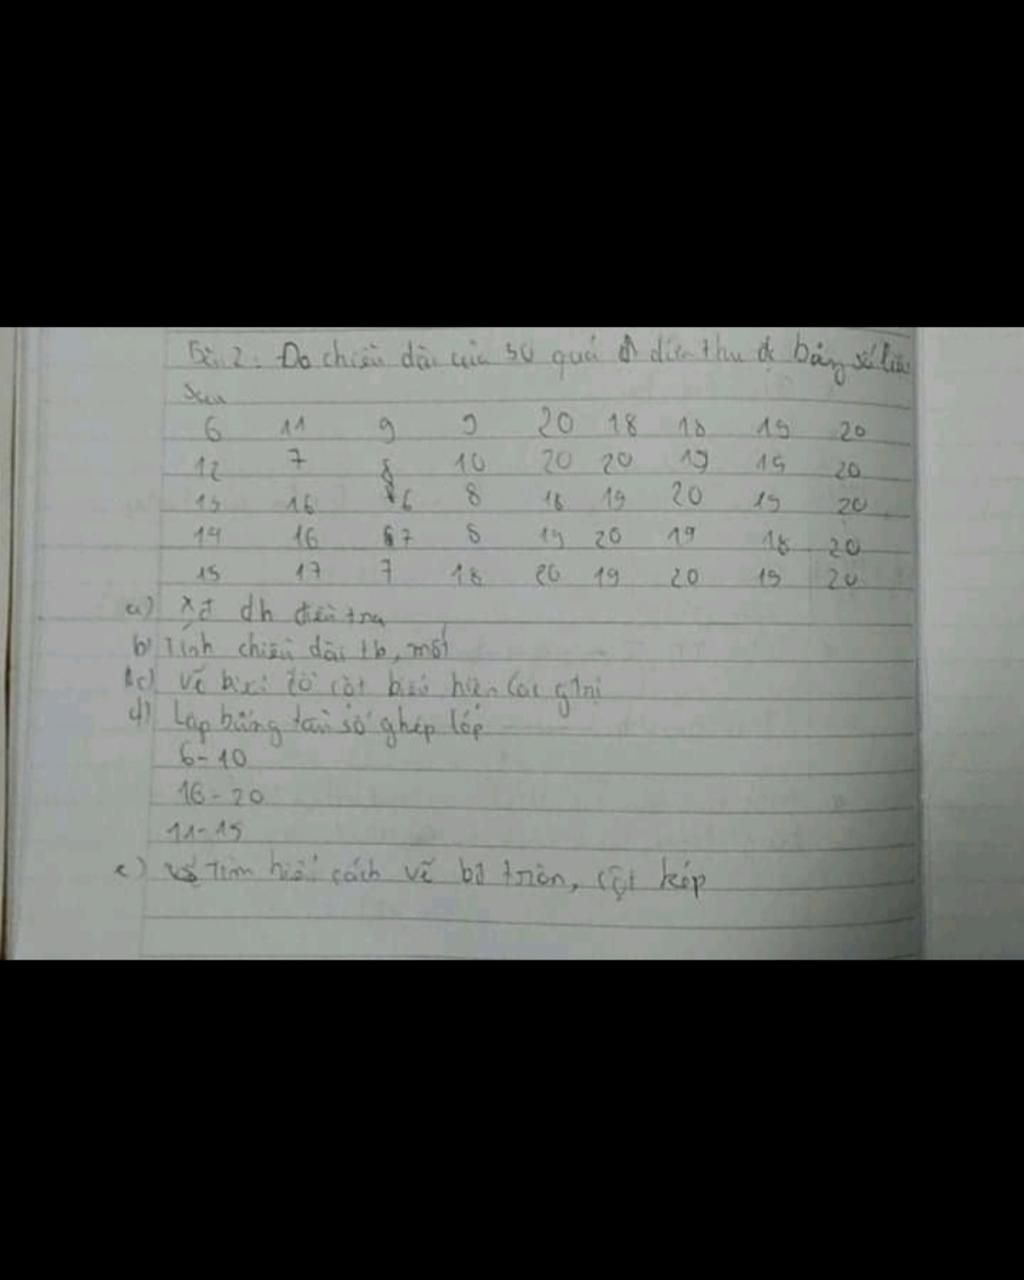 Bài 2: Đo chiều dài của 50 quả ớt diên thu đc bảng số liệu
Sau
6 11 9 9 20 18 18 19 20
12 7 8 10 20 20 19 19 20
13 16 6 8 18 19 20 19 20
14 16 7 8 19 20 19 18 20
15 17 7 18 20 19 20 19 20
a) Xđ dh điều tra
b) Tính chiều dài tb, mốt
c) Vẽ đồ cột biểu hiện các gtrị
d) Lập bảng tần số ghép lớp
6-10
16-20
11-15
e) Tìm hiểu cách vẽ bđ tròn, cột kép